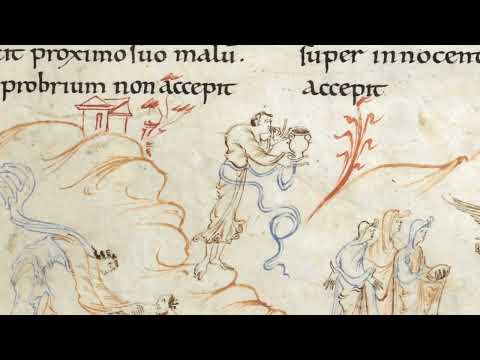 cit proximo suo malu.
probrium non accepit
super innocent
accepit